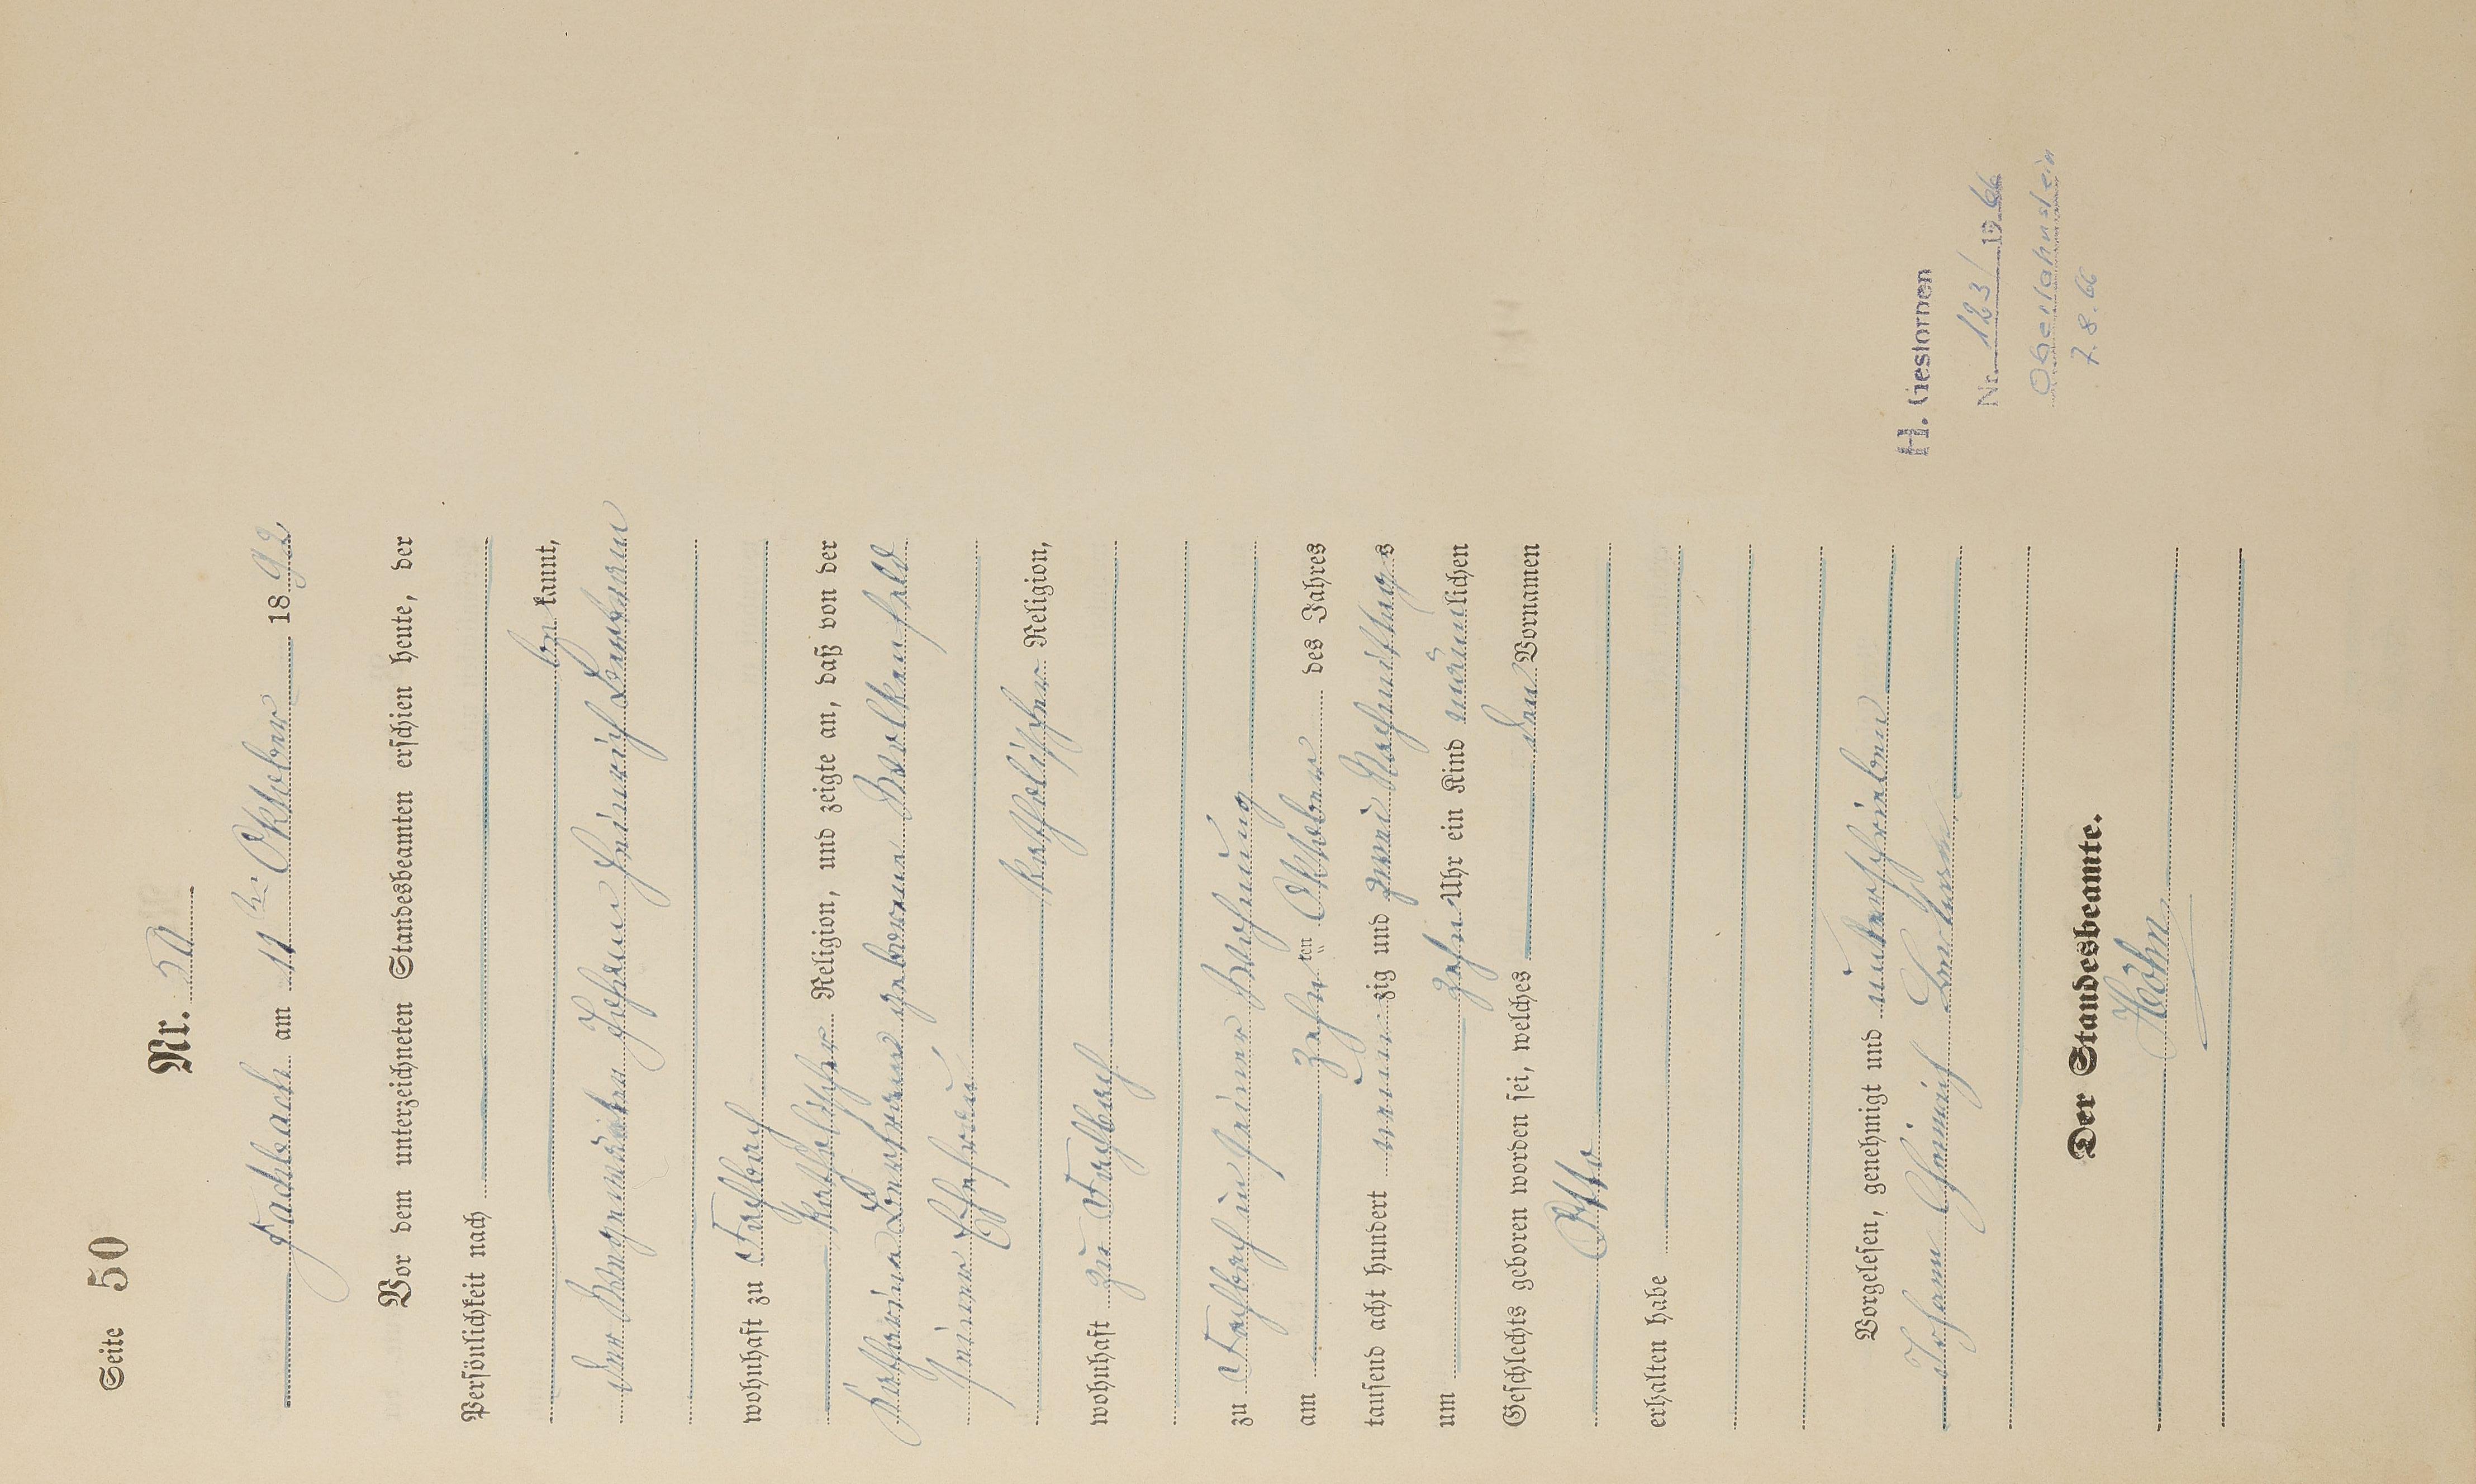 Seite 50
Nr. 50
Fachbach am 11ten Oktober 1892
Vor dem unterzeichneten Standesbeamten erschien heute, der
Persönlichkeit nach
be kannt,
der Johann Heinrich
wohnhaft zu Fachbach
katholischer Religion, und zeigte an, daß von der
Katharina geborene
seiner Ehefrau
katholischer Religion,
wohnhaft zu Fachbach
zu Fachbach in seiner Wohnung
am zehnten Oktober des Jahres
tausend acht hundert neunzig und zwei Nachmittags
um zehn Uhr ein Kind männlichen
Geschlechts geboren worden sei, welches den Vornamen
Otto
erhalten habe
Vorgelesen, genehmigt und unterschrieben
Johann Heinrich
Der Standesbeamte.
Höhn
H. Gestorben
Nr. 123/1966
Oberlahnstein
7.8.66